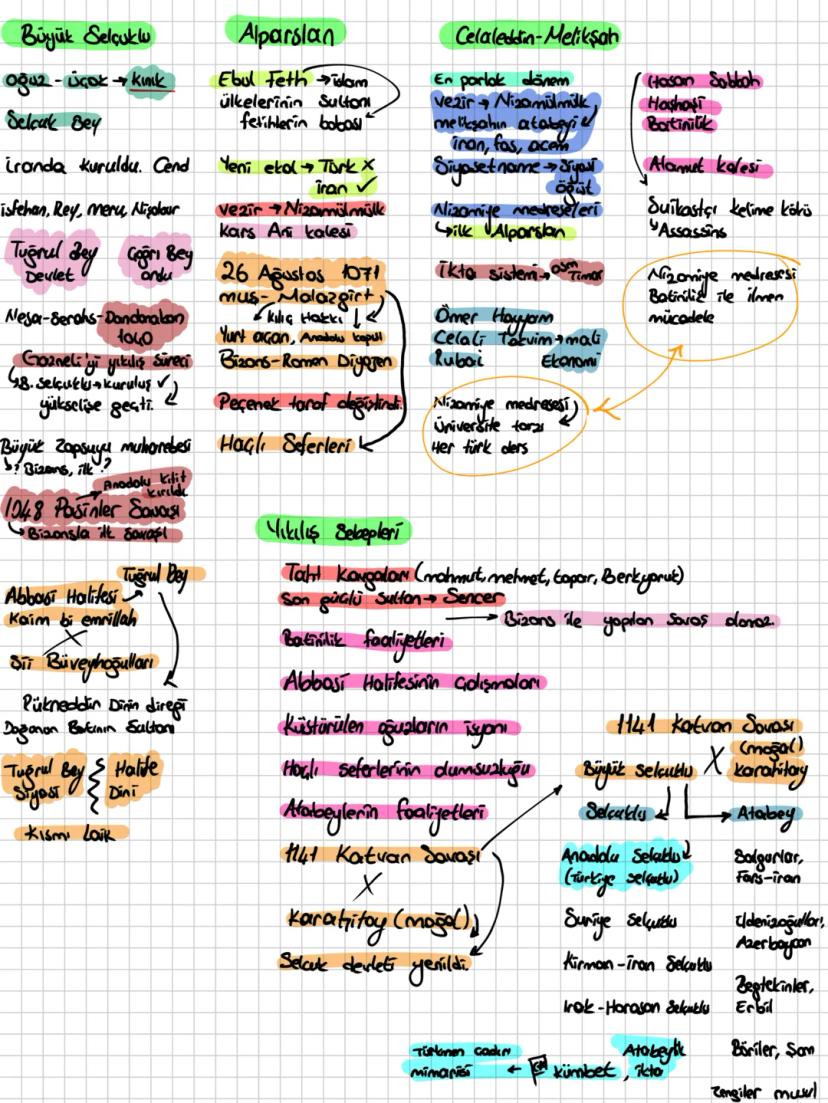 Büyük Selçuklu
Oğuz - Üçok → Kınık
Selçuk Bey
iranda kuruldu. Cend
isfehan, Rey, merv, Nişabur
Tuğrul Bey Çağrı Bey
Devlet ordu
Nesa-Serahs-Dandanakan
1040
Gazneli'yi yıkılış süreci
→B. Selçuklu → kuruluş ✓
yükselişe geçti.
Büyük Zapsuyu muharebesi
→? Bizans, ilk ?
Anadolu kilit
kırıldı
1048 Pasinler Savaşı
→Bizansla ilk savaşı
Tuğrul Bey
Abbasi Halifesi
Kaim bi emrillah
X
Şii Büveyhoğulları
Rükneddin Dinin direği
Doğunun Batının Sultanı
Tuğrul Bey Halife
Siyasi Dini
Kısmi Laik
Alparslan
Ebul Feth → islam
ülkelerinin Sultanı
fetihlerin babası
Yeni ekol → Türk X
iran ✓
vezir → Nizamülmülk
Kars Ani kalesi
26 Ağustos 1071
muş- Malazgirt
Kılıç Hakkı
Yurt açan, Anadolu kapısı
Bizans-Romen Diyojen
Peçenek taraf değiştirdi.
Haçlı Seferleri
Celaleddin-Melikşah
En parlak dönem
Vezir → Nizamülmülk
melikşahın atabeyi
iran, fas, acem
Siyasetname → Siyasi
öğüt
Nizamiye medreseleri
→ilk Alparslan
İkta sistemi → osm
Tımar
Ömer Hayyam
Celali Takvim → mali
Rubai Ekonomi
Nizamiye medresesi
Üniversite tarzı
Her türk ders
Hasan Sabbah
Haşhaşi
Batinilik
Alamut kalesi
Suikastçı kelime kökü
Assassins
Nizamiye medresesi
Batinilik ile ilmen
mücadele
Yıkılış Sebepleri
Taht kavgaları (mahmut, mehmet, tapar, Berkyaruk)
Son güçlü sultan → Sencer
→ Bizans ile yapılan savaş olamaz
Batinilik faaliyetleri
Abbasi Halifesinin Çalışmaları
Küstürülen oğuzların isyanı
Haçlı seferlerinin olumsuzluğu
Atabeylerin faaliyetleri
1141 Katvan Savaşı
X
Karahitay (moğol)
Selçuk devleti yenildi.
1141 Katvan Savaşı
(moğol)
Büyük selçuklu X Karahitay
Selçuklu Atabey
Anadolu Selçuklu
(Türkiye selçuklu)
Suriye Selçuklu
Kirman-iran Selçuklu
Irak-Horasan Selçuklu
Salgurlar,
Fars-iran
İldenizoğulları,
Azerbaycan
Begtekinler,
Erbil
Böriler, Şam
Zengiler musul
Türkmen Çadırı
mimarisi ← kümbet,
Atabeylik
ikta